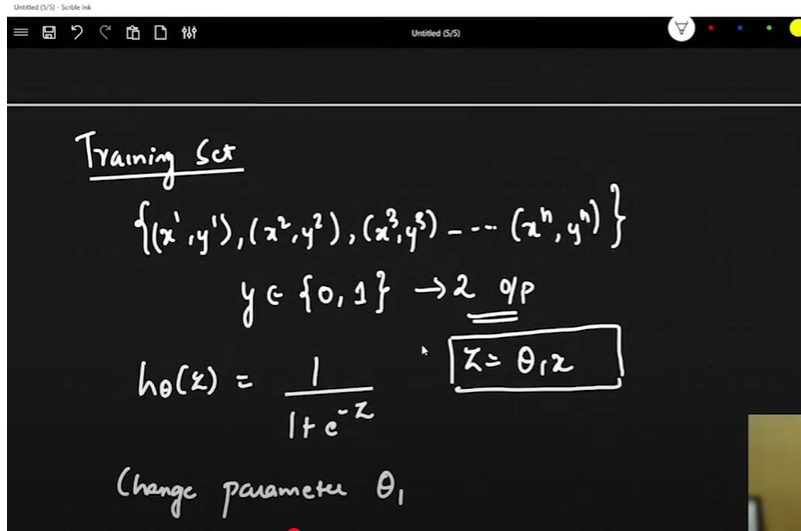 Untitled (5/5) - Scrble Ink
Untitled (5/5)
Training Set
{(x¹, y¹), (x², y²), (x³, y³) ---- (xⁿ, yⁿ)}
y ∈ {0, 1} → 2 o/p
hθ(z) = 1 / (1 + e^-z)
z = θ₁x
Change parameter θ₁